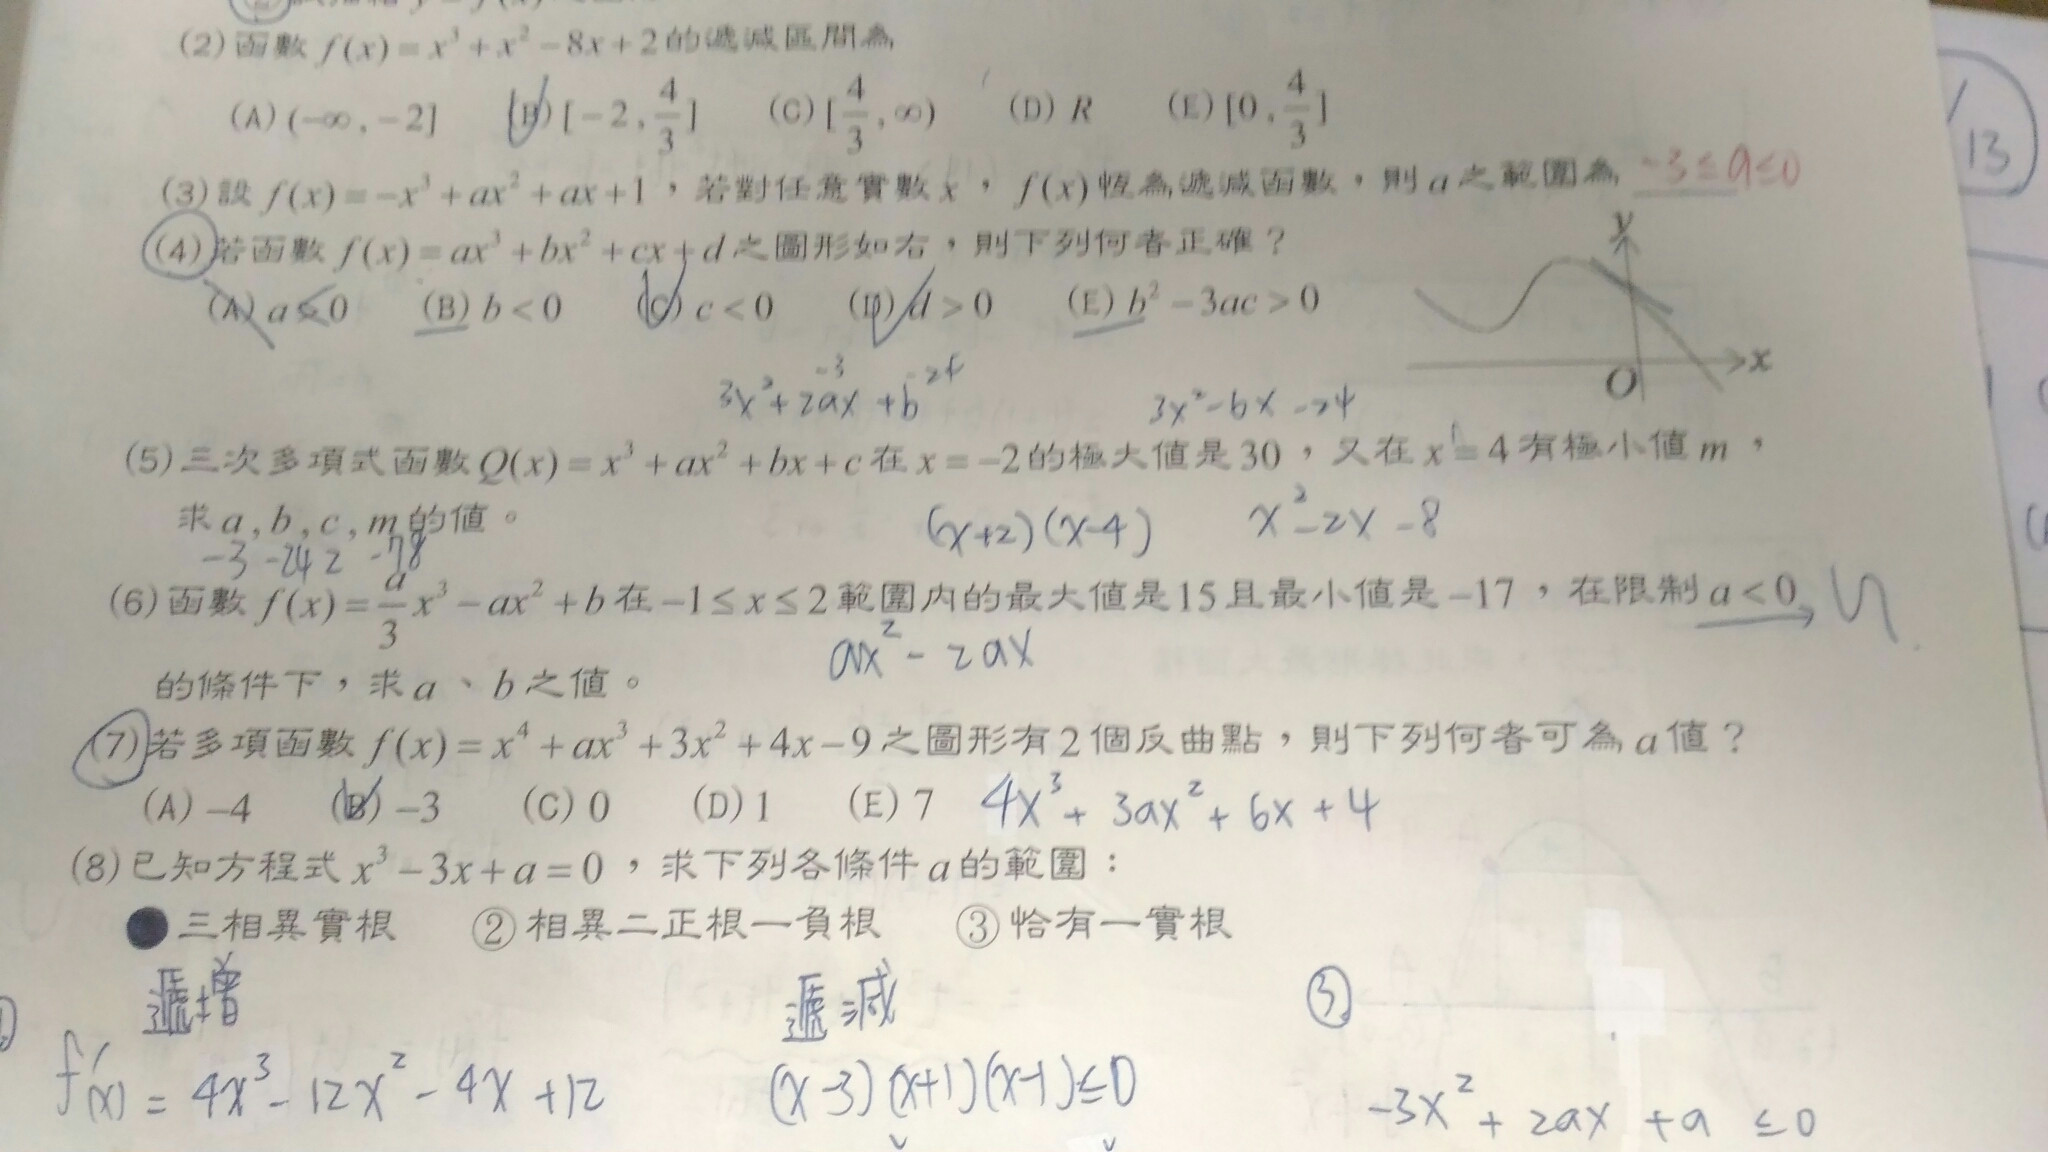 (2)函數 f(x)=x³+x²−8x+2的遞減區間為
(A)(−∞,−2] (B)[−2,4/3] (C)[4/3,∞) (D) R (E)[0,4/3]
13
(3)設 f(x)=−x³+ax²+ax+1,若對任意實數x,f(x)恆為遞減函數,則a之範圍為 -3≤a≤0
(4)若函數 f(x)=ax³+bx²+cx+d之圖形如右,則下列何者正確?
y
(A) a≤0 (B) b<0 (C) c<0 (D) d>0 (E) b²−3ac>0
O x
3x²+2ax+b -3 -24
3x²-6x-24
(5)三次多項式函數Q(x)=x³+ax²+bx+c在x=−2的極大值是30,又在x=4有極小值m,
求a,b,c,m的值。
-3 -24 2 -78
(x+2)(x-4) x²-2x-8
(6)函數 f(x)=a/3x³−ax²+b在−1≤x≤2範圍內的最大值是15且最小值是−17,在限制a<0
ax²-2ax
的條件下,求a、b之值。
(7)若多項函數 f(x)=x⁴+ax³+3x²+4x−9之圖形有2個反曲點,則下列何者可為a值?
(A)−4 (B)−3 (C)0 (D)1 (E)7 4x³+3ax²+6x+4
(8)已知方程式x³−3x+a=0,求下列各條件a的範圍:
三相異實根 ②相異二正根一負根 ③恰有一實根
遞增 遞減 ③
f'(x)=4x³-12x²-4x+12 (x-3)(x+1)(x-1)≤0 -3x²+2ax+a≤0